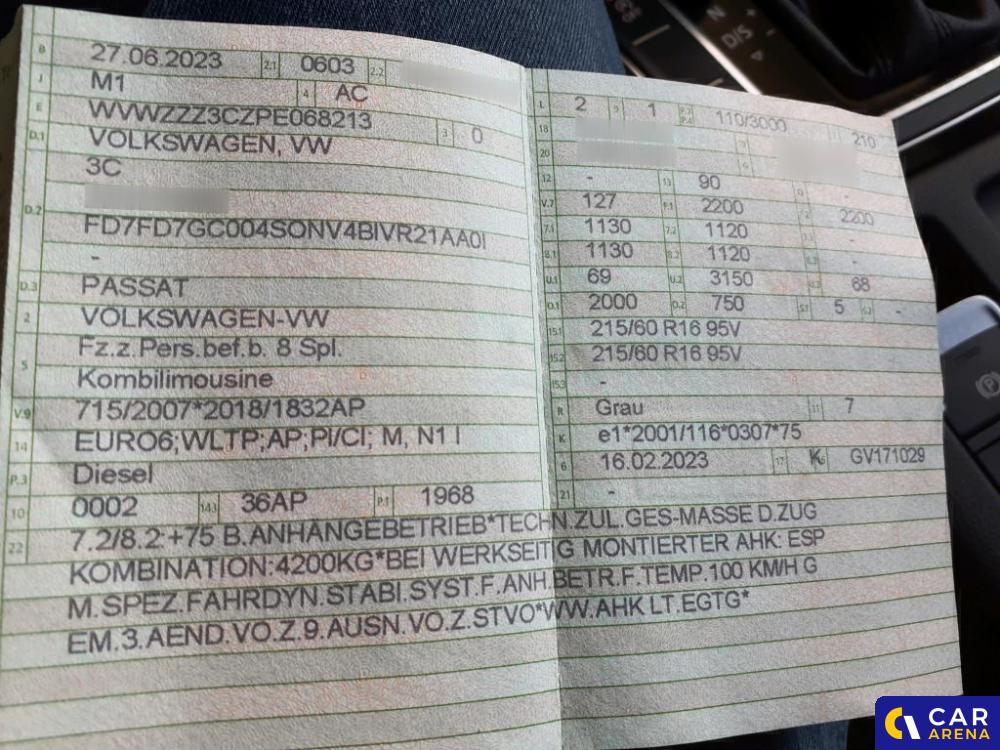 B 27.06.2023 2.1 0603 2.2
J M1 4 AC
E WVWZZZ3CZPE068213 3 0
D.1 VOLKSWAGEN, VW
3C
D.2
FD7FD7GC004SONV4BIVR21AA0I
-
D.3 PASSAT
2 VOLKSWAGEN-VW
5 Fz.z.Pers.bef.b. 8 Spl.
Kombilimousine
V.9 715/2007*2018/1832AP
14 EURO6;WLTP;AP;PI/CI; M, N1 I
P.3 Diesel
10 0002 14.1 36AP P.1 1968
L 2 9 1 P.2 P.4 110/3000 T 210
18
20 G
12 - 13 90 Q -
V.7 127 F.1 2200 F.2 2200
7.1 1130 7.2 1120 7.3 -
8.1 1130 8.2 1120 8.3 -
U.1 69 U.2 3150 U.3 68
O.1 2000 O.2 750 S.1 5 S.2 -
15.1 215/60 R16 95V
15.2 215/60 R16 95V
15.3 -
R Grau 11 7
K e1*2001/116*0307*75
6 16.02.2023 17 K 16 GV171029
21 -
22 7.2/8.2:+75 B.ANHÄNGEBETRIEB*TECHN.ZUL.GES-MASSE D.ZUG
KOMBINATION:4200KG*BEI WERKSEITIG MONTIERTER AHK: ESP
M.SPEZ.FAHRDYN.STABI.SYST.F.ANH.BETR.F.TEMP.100 KM/H G
EM.3.AEND.VO.Z.9.AUSN.VO.Z.STVO*WW.AHK LT.EGTG*
N
D/S
CAR
ARENA